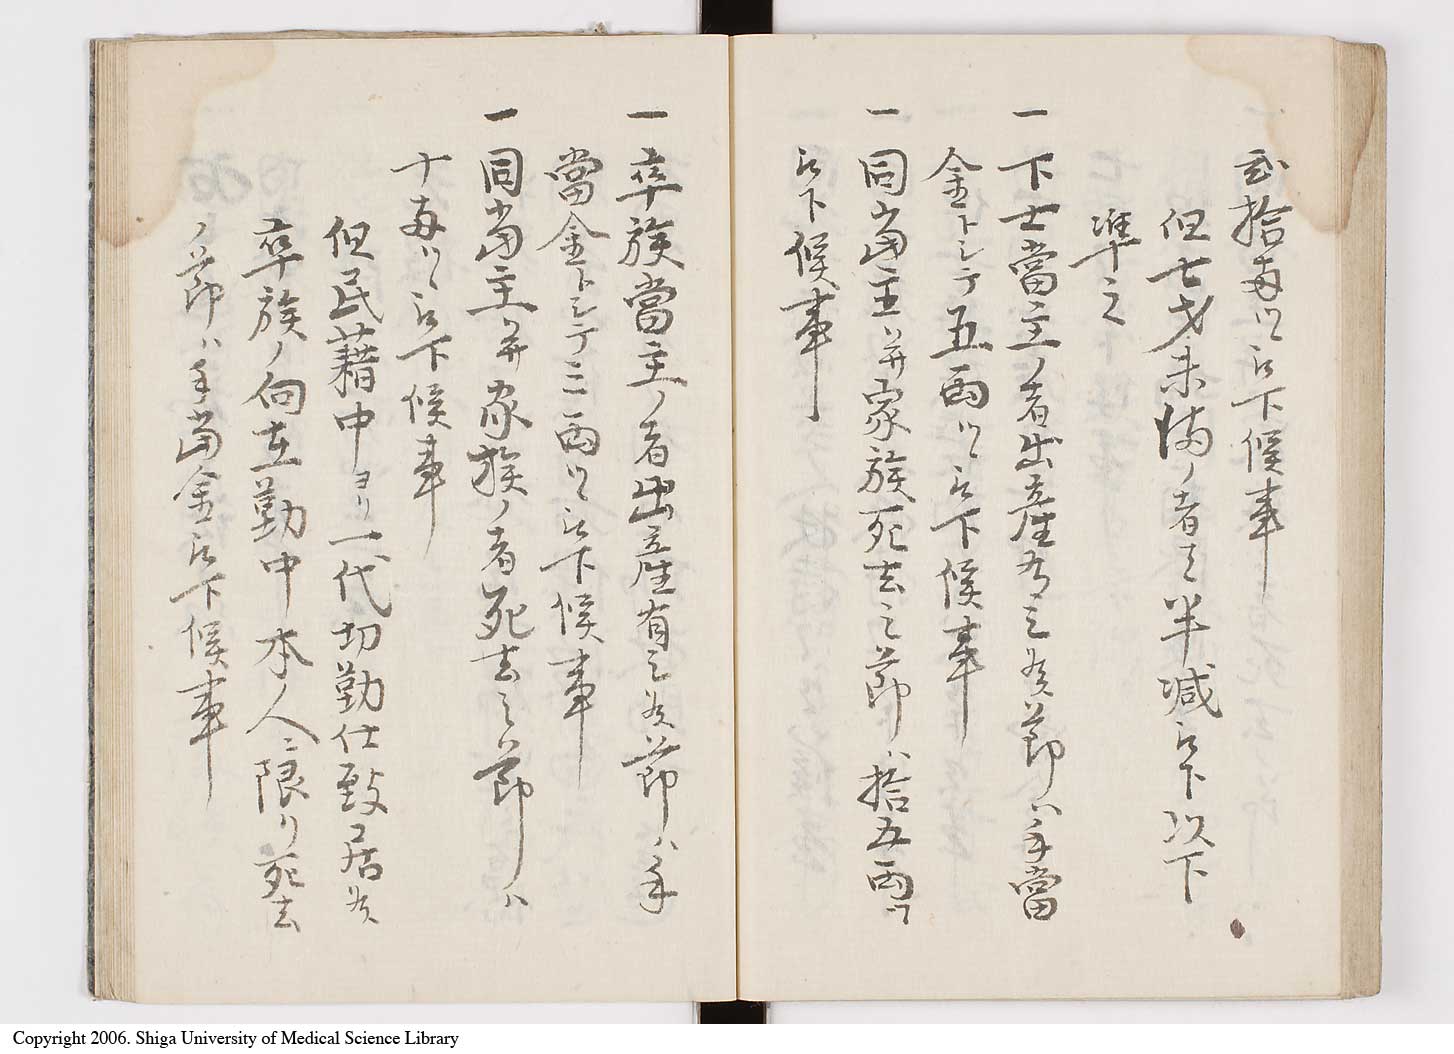 弐拾両ツヽ被下候事
但七才未満ノ者ハ半減被下以下
準之
一下士當主ノ者出産有之候節ハ手當
金トシテ五両ツヽ被下候事
一同當主并家族死去之節ハ拾五両ツヽ
被下候事
一卒族當主ノ者出産有之候節ハ手
當金トシテ三両ツヽ被下候事
一同當主并家族ノ者死去之節ハ
十両ツヽ被下候事
但民籍中ヨリ一代切勤仕致居候
卒族ノ向在勤中本人ニ限リ死去
ノ節ハ手當金被下候事
Copyright 2006. Shiga University of Medical Science Library